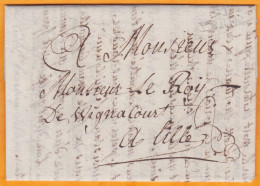 A Monsieur
Monsieur Le Roy
De Wignacourt
A Lille